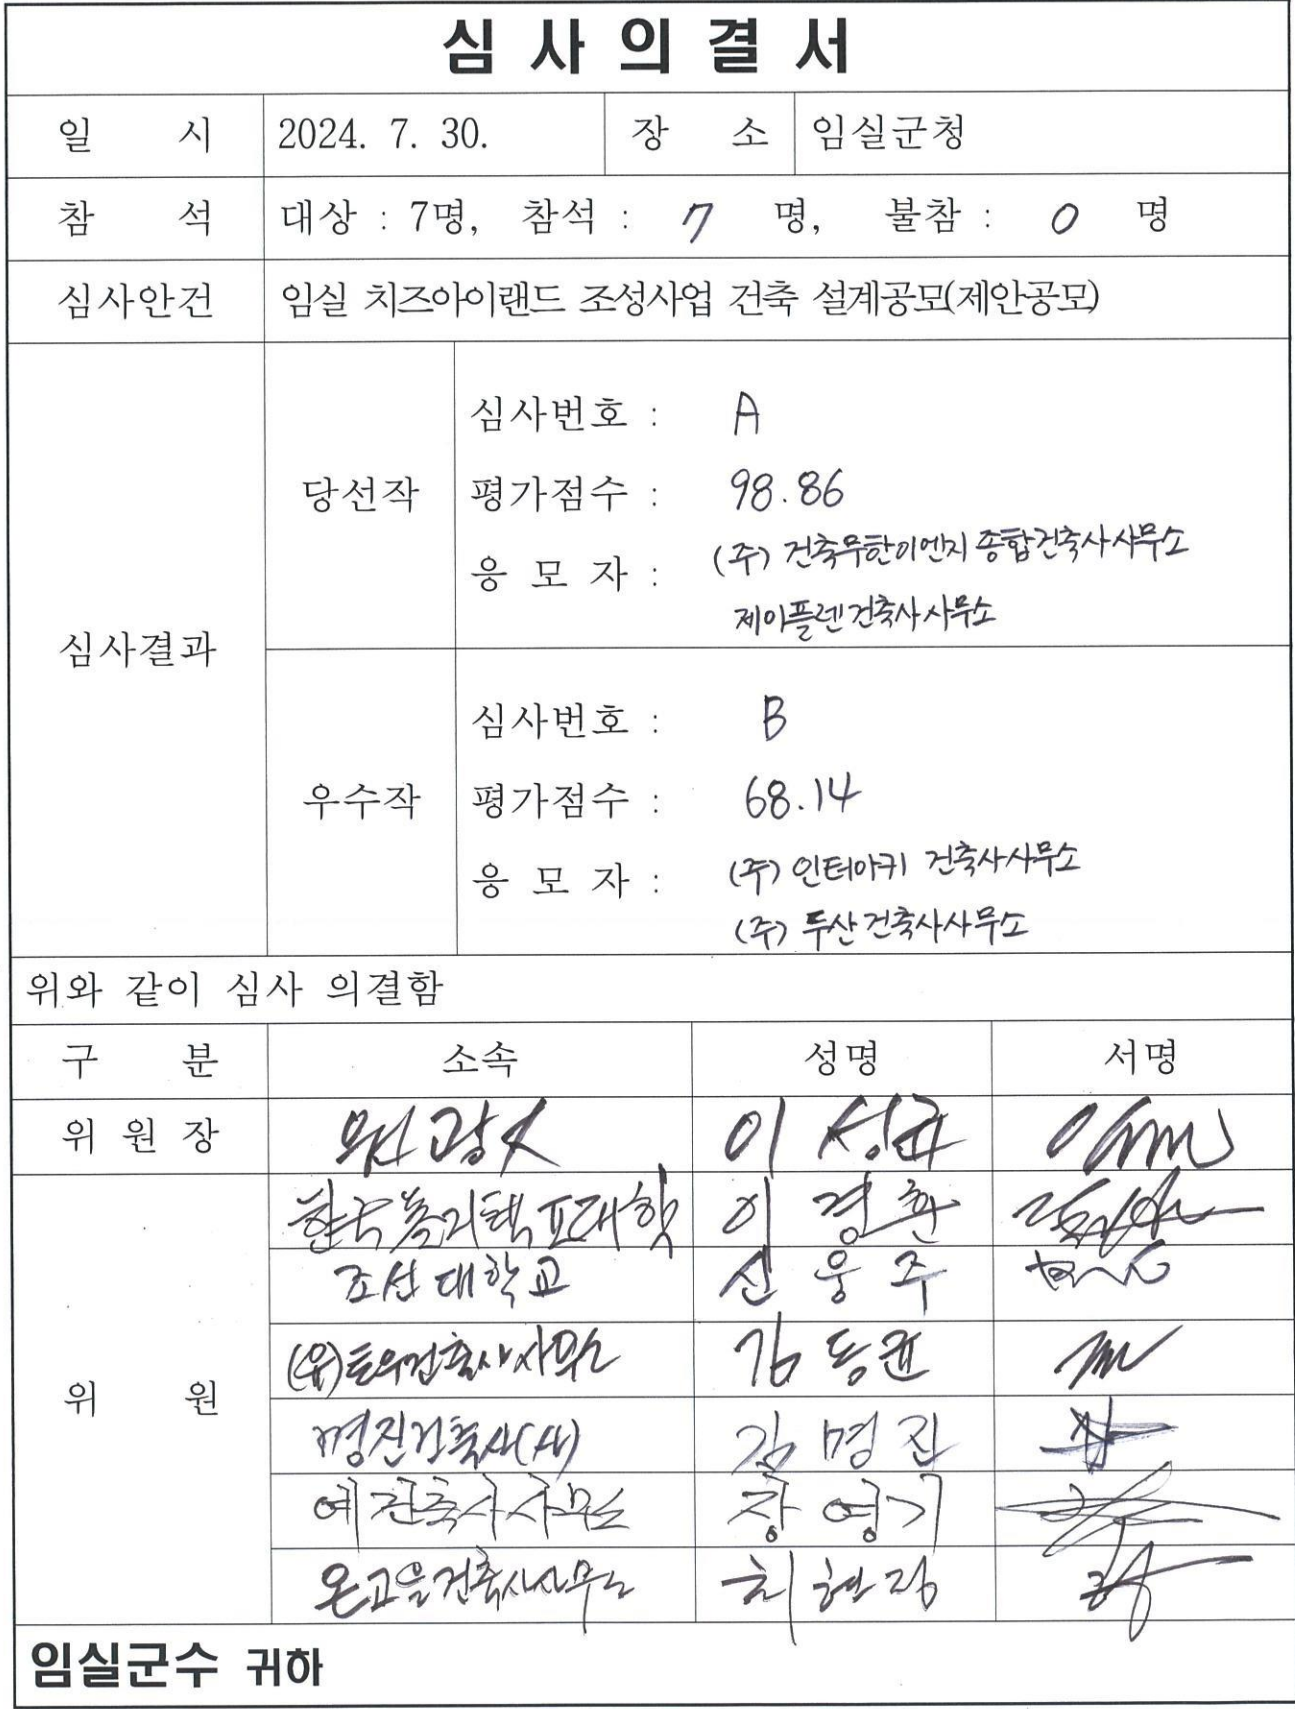 심 사 의 결 서
일 시 2024. 7. 30. 장 소 임실군청
참 석 대상 : 7명, 참석 : 7 명, 불참 : 0 명
심사안건 임실 치즈아이랜드 조성사업 건축 설계공모(제안공모)
심사결과
당선작
심사번호 : A
평가점수 : 98.86
응 모 자 : (주) 건축무한이엔지 종합건축사사무소
제이플렌 건축사사무소
우수작
심사번호 : B
평가점수 : 68.14
응 모 자 : (주) 인터아키 건축사사무소
(주) 두산 건축사사무소
위와 같이 심사 의결함
구 분 소속 성명 서명
위 원 장 원광大 이성규
위 원
한국폴리텍Ⅱ대학 이경환
조선대학교 신웅주
(유)토우건축사사무소 김동균
명진건축사(사) 김명진
예건축사사무소 장영기
온고을건축사사무소 최현정
임실군수 귀하